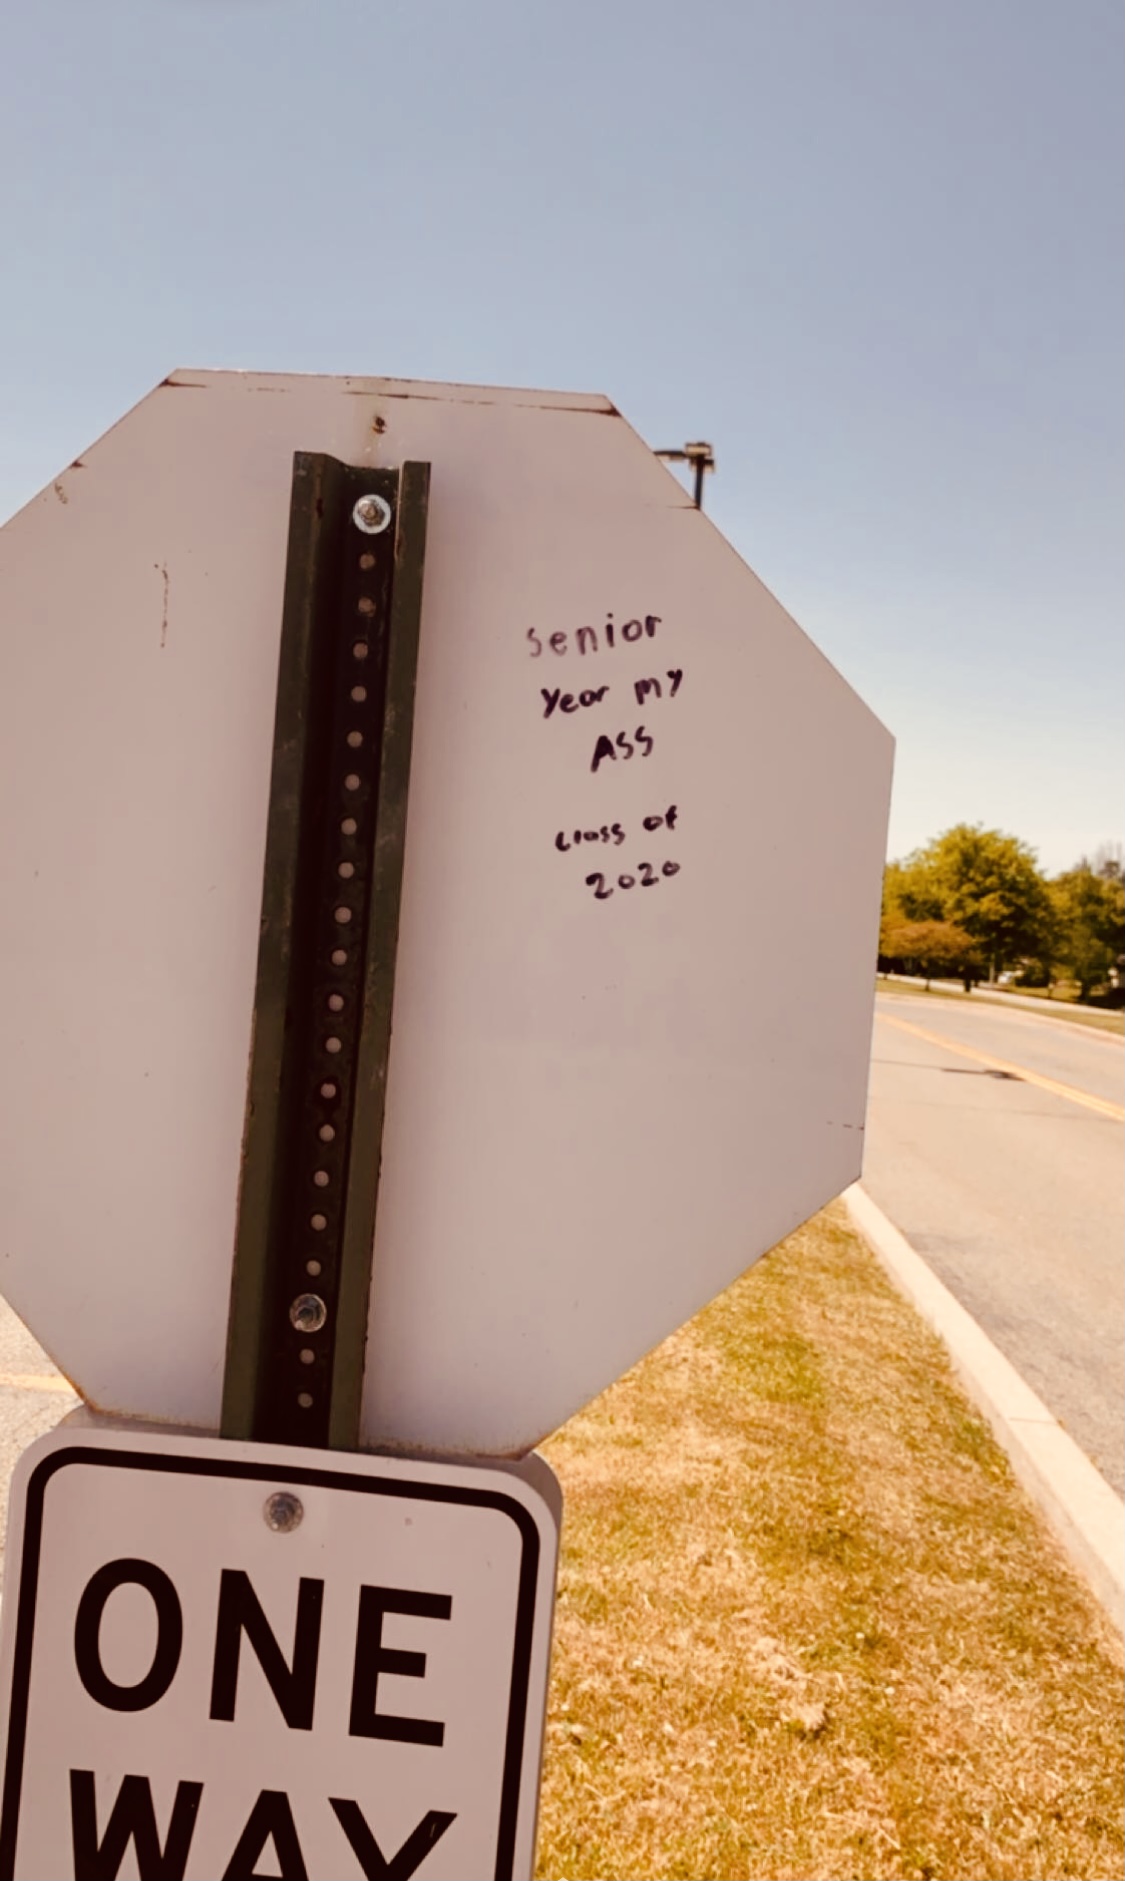 Senior
Year my
ASS
class of
2020
ONE
WAY